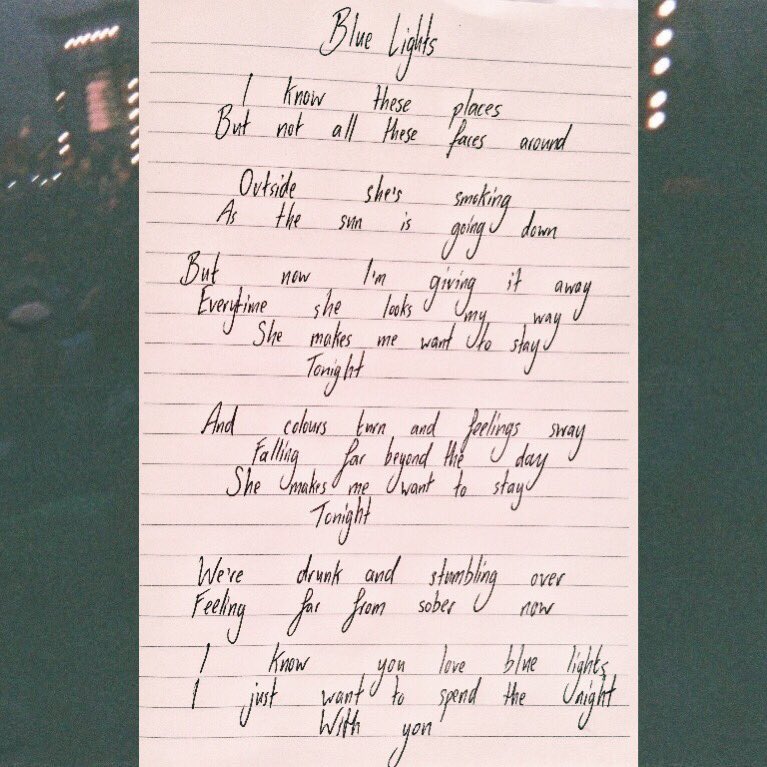 Blue Lights
I know these places
But not all these faces around
Outside she's smoking
As the sun is going down
But now I'm giving it away
Everytime she looks my way
She makes me want to stay
Tonight
And colours turn and feelings sway
Falling far beyond the day
She makes me want to stay
Tonight
We're drunk and stumbling over
Feeling far from sober now
I know you love blue lights
I just want to spend the night
With you